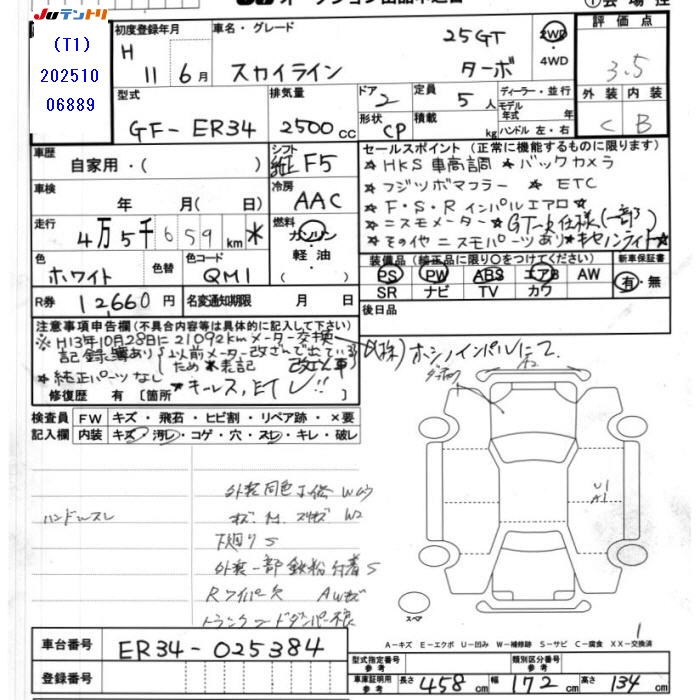 Juテントリ
(T1)
202510
06889
初度登録年月
H
11 6月
車名・グレード
25GT
スカイライン ターボ
2WD
・4WD
評価点
3.5
外装 内装
C B
型式
GF-ER34
排気量
2500cc
ドア 2
形状 CP
定員 5人
積載 kg
ディーラー・並行
モデル年式 年
ハンドル 左・右
車歴
自家用・( )
シフト
F5
セールスポイント (正常に機能するものに限ります)
☆HKS車高調 ☆バックカメラ
☆フジツボマフラー ☆ETC
☆F・S・Rインパルエアロ☆
☆ニスモメーター☆GT-R仕様(一部)
☆その他ニスモパーツあり☆キセノンライト☆
車検
年 月( 日)
冷房
AAC
走行
4万5千659km*
燃料
ガソリン
・軽油・
( )
色
ホワイト
色替
色コード
QM1
装備品 (純正品に限り○をつけてください)
PS PW ABS エアB AW
SR ナビ TV カワ
新車保証書
有・無
R券
12,660円
名変通知期限 月 日
後日品
注意事項申告欄 (不具合内容等は具体的に記入して下さい)
※H13年10月28日に21092kmメーター交換
記録簿あり(以前メーター改ざんで出ている
ため*表記
☆純正パーツなし
修復歴 有 [箇所
(株)ホシノインパルにて
検査員 FW キズ・飛石・ヒビ割・リペア跡・×要
記入欄 内装 キズ・汚レ・コゲ・穴・スレ・キレ・破レ
ハンドルスレ
下廻りS
外装一部鉄粉付着S
Rワイパー欠 AWキズ
U1
A1
スペア
1
車台番号 ER34-025384
登録番号
A-キズ E-エクボ U-凹み W-補修跡 S-サビ C-腐食 XX-交換済
型式指定番号
参考
類別区分番号
参考
車庫証明用
参考
長さ 458cm 幅 172cm 高さ 134cm